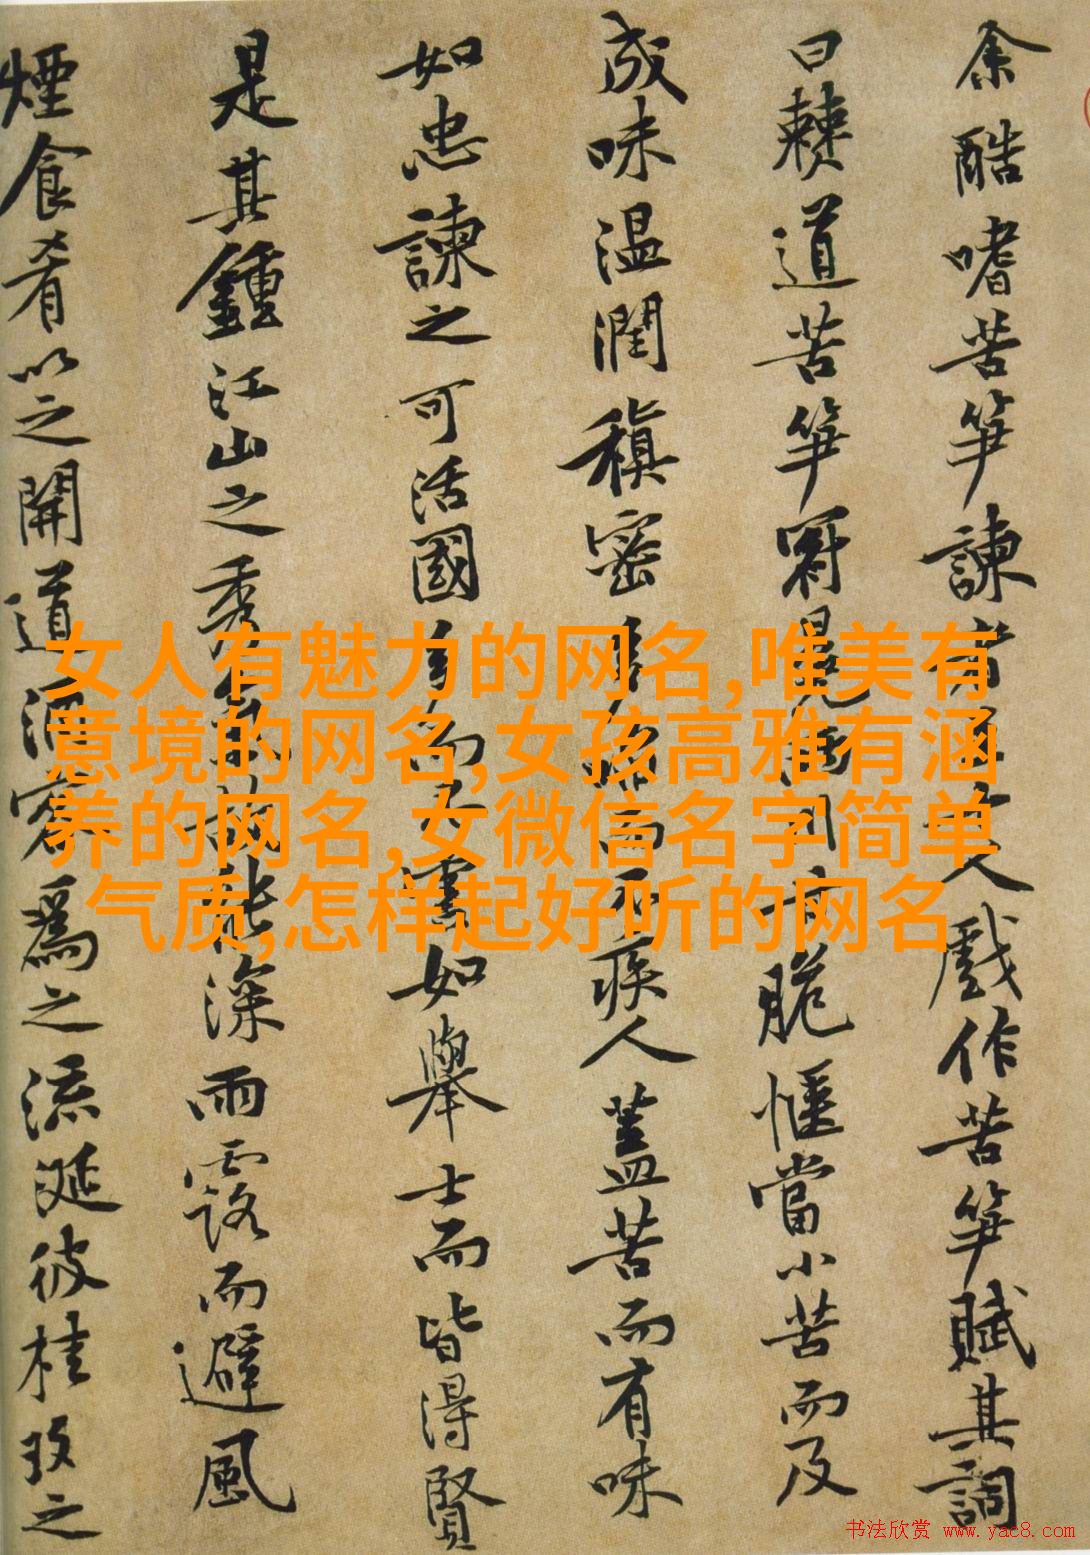 余酷嗜苦笋諫者至十人戲作苦笋賦其詞
曰道苦笋冠冕两川甘脆愜當小苦而及
成味温潤稹密多啗而不疾人蓋苦而有味
如忠諫之可活國多而不害如舉士而皆得賢
是其鍾江山之秀氣故能深雨露而避風
煙食肴以之開道酒客爲之流涎彼桂玫之
女人有魅力的网名,唯美有
意境的网名,女孩高雅有涵
养的网名,女微信名字简单
气质,怎样起好听的网名
书法欣赏 www.yac8.com